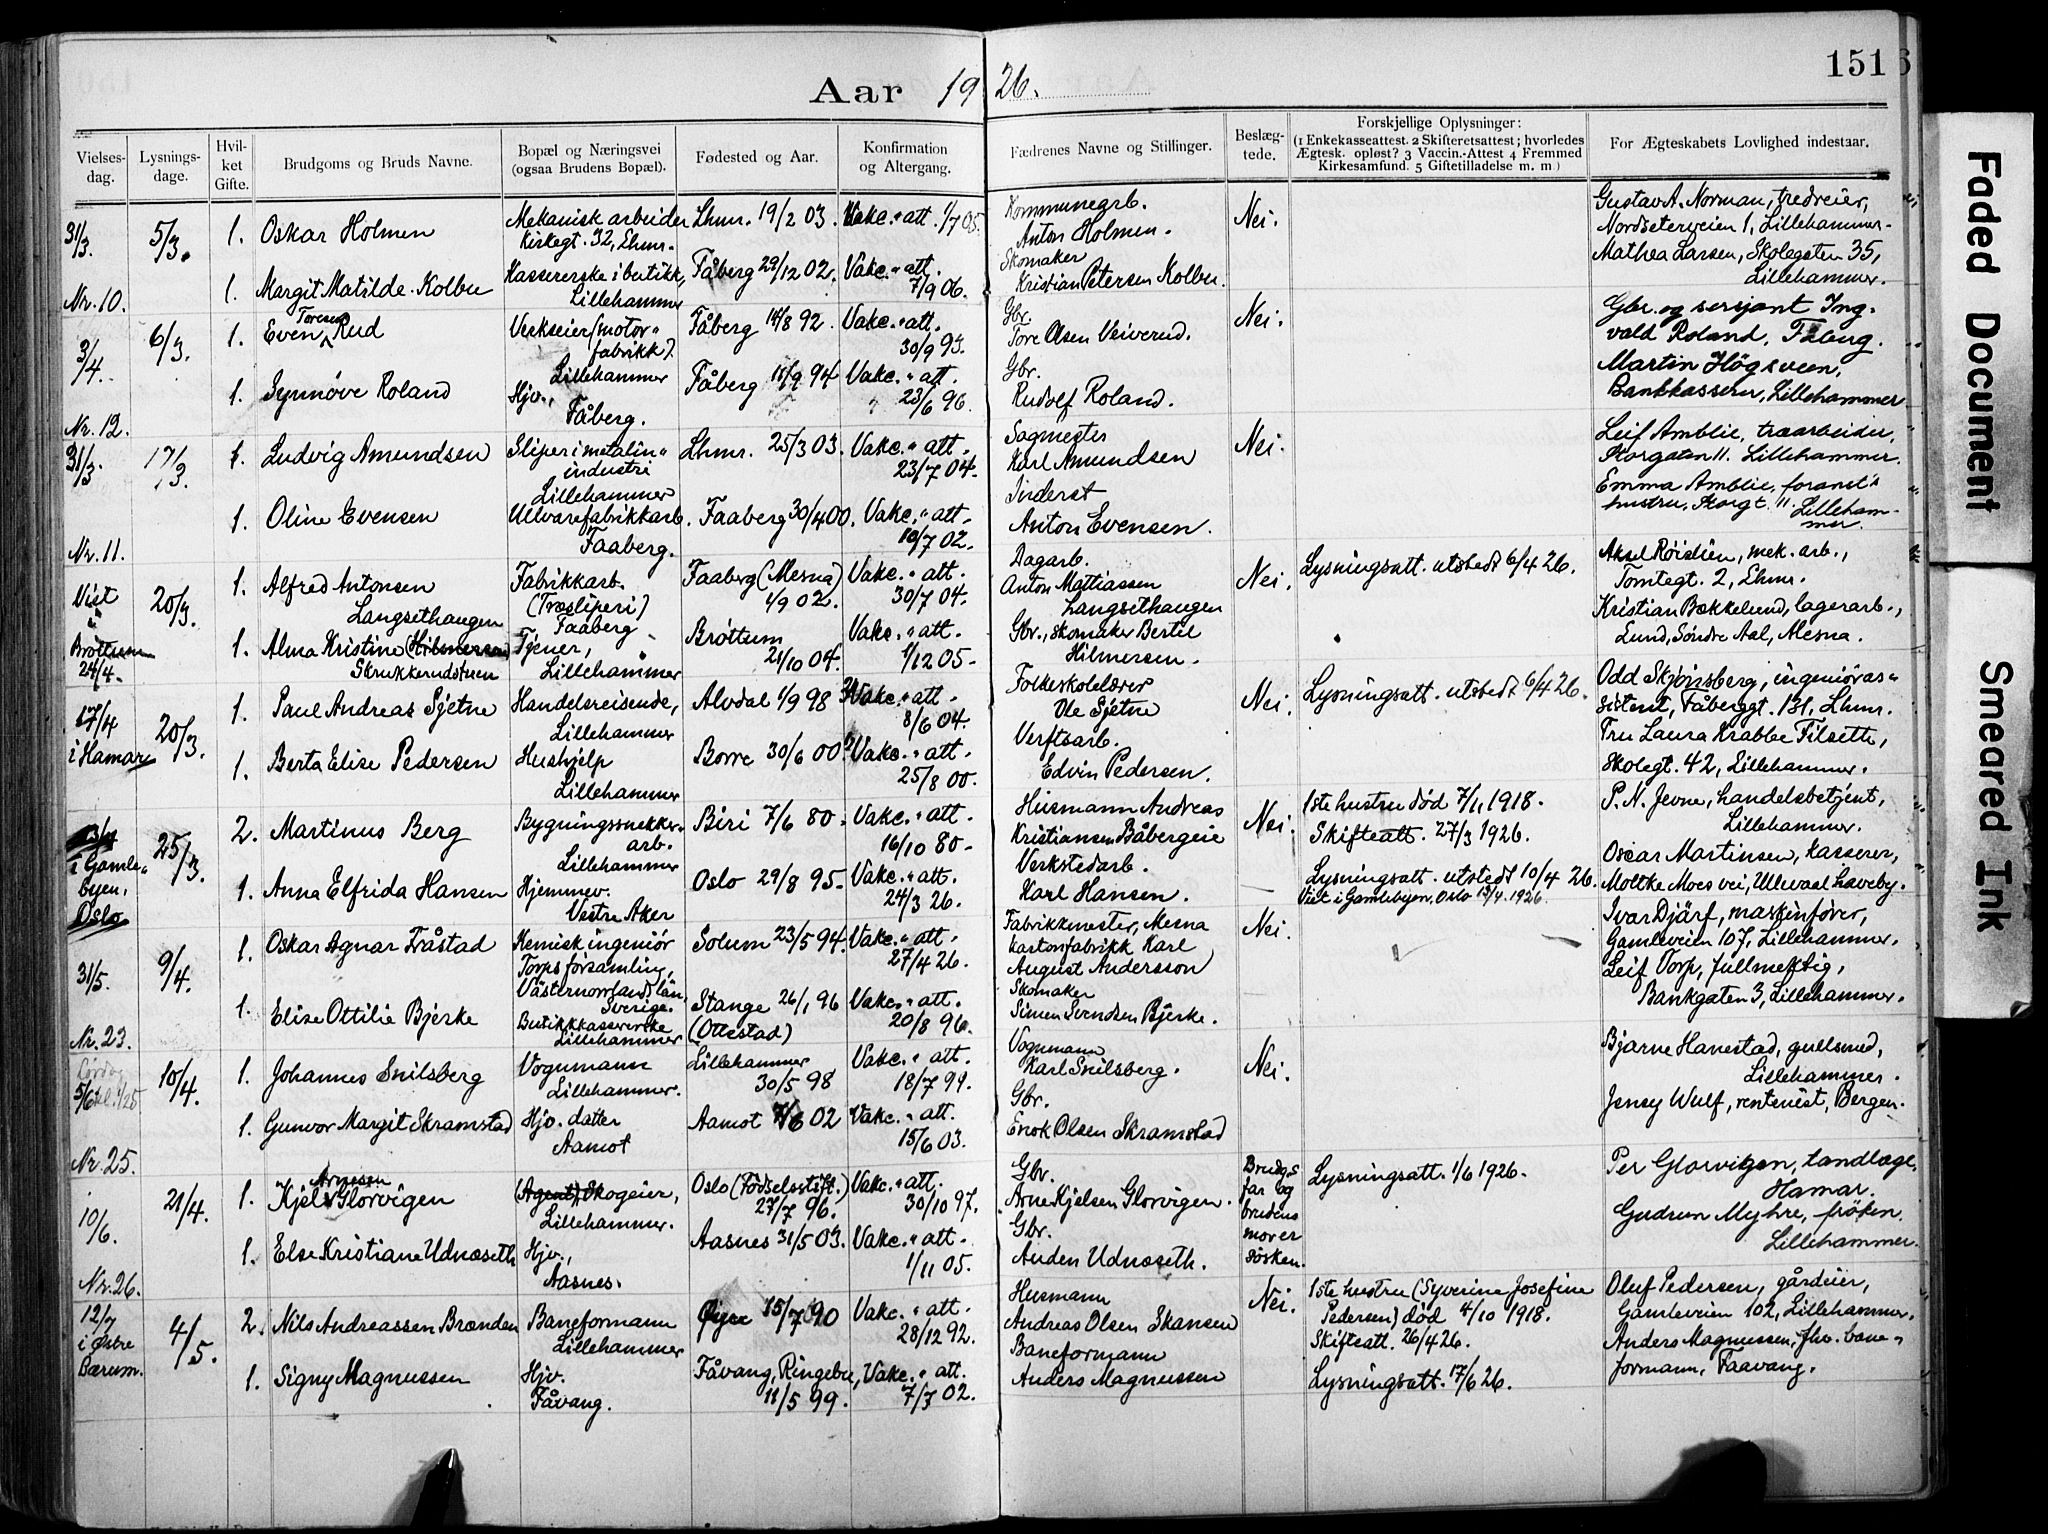 Aar 1926.
151
Faded Document
Smeared Ink
Vielses-dag.
Lysnings-dage.
Hvilket Gifte.
Brudgoms og Bruds Navne.
Bopæl og Næringsvei (ogsaa Brudens Bopæl).
Fødested og Aar.
Konfirmation og Altergang.
Fædrenes Navne og Stillinger.
Beslæg-tede.
Forskjellige Oplysninger: (1 Enkekasseattest. 2 Skifteretsattest; hvorledes Ægtesk. opløst? 3 Vaccin.-Attest 4 Fremmed Kirkesamfund. 5 Giftetilladelse m. m)
For Ægteskabets Lovlighed indestaar.
31/3. 5/3. 1. Oskar Holmen
Mekanisk arbeider Kirkegt. 32, Lhmr.
Lhmr. 19/2 03. Vakc. att. 1/7 05.
Kommunearb. Anton Holmen. Nei.
Gustav A. Norman, tredreier, Nordseterveien 1, Lillehammer.
Nr. 10. 1. Margit Matilde Kolbu
Kassererske i butikk, Lillehammer
Fåberg 29/12 02. Vakc. att. 7/9 06.
Skomaker Kristian Petersen Kolbu.
Mathea Larsen, Skolegaten 35, Lillehammer.
3/4. 6/3. 1. Even Toresen Rud
Verkseier (motorfabrikk). Lillehammer
Fåberg 14/8 92. Vakc. att. 30/9 93.
Gbr. Tore Olsen Veiverud. Nei.
Gbr. og sersjant Ingvald Roland, Fåberg.
Nr. 12. 1. Synnøve Roland
Hjv., Fåberg.
Fåberg 18/9 94 Vakc. att. 23/6 96.
Gbr. Rudolf Roland.
Martin Högsveen, Bankkasserer, Lillehammer
31/3. 17/3. 1. Ludvig Amundsen
Sliper i metalindustri Lillehammer
Lhmr. 25/3 03. Vakc. att. 23/7 04.
Sagmester Karl Amundsen Nei.
Leif Amblie, træarbeider, Storgaten 11. Lillehammer.
Nr. 11. 1. Oline Evensen
Ullvarefabrikkarb. Faaberg.
Faaberg 30/4 00. Vakc. att. 10/7 02.
Inderst Anton Evensen.
Emma Amblie, foranst's hustru, Storgt. 11. Lillehammer.
Viet i Brøttum 24/4. 20/3. 1. Alfred Antonsen Langsethaugen
Fabrikkarb. (Træsliperi) Faaberg
Faaberg (Mesna) 1/9 02. Vakc. att. 30/7 04.
Dagarb. Anton Mattiassen Langsethaugen Nei.
Lysningsatt. utstedt 6/4 26.
Aksel Røislien, mek. arb., Tomtegt. 2, Lhmr.
1. Alma Kristine (Hilmersen) Skrukkerudstuen
Tjener, Lillehammer
Brøttum 21/10 04. Vakc. att. 1/12 05.
Gbr., skomaker Bertel Hilmersen.
Kristian Bækkelund, lagerarb., Lund, Søndre Aal, Mesna.
17/4 i Hamar 20/3. 1. Paul Andreas Sjetne
Handelsreisende, Lillehammer
Alvdal 1/9 98 Vakc. att. 8/6 04.
Folkeskolelærer Ole Sjetne Nei.
Lysningsatt. utstedt 6/4 26.
Odd Skjønsberg, ingeniørassistent, Fåberggt. 131, Lhmr.
1. Berta Elise Pedersen
Hushjelp Lillehammer
Borre 30/6 00 Vakc. att. 25/8 00.
Verftsarb. Edvin Pedersen.
Fru Laura Krabbe Filseth, Skolegt. 42, Lillehammer.
i Gamlebyen, Oslo 25/3. 2. Martinus Berg
Bygningssnekkerarb. Lillehammer
Biri 7/6 80. Vakc. att. 16/10 80.
Husmann Andreas Kristiansen Båbergeie Nei.
1ste hustru død 7/1, 1918. Skifteatt. 27/3 1926.
P. N. Jevne, handelsbetjent, Lillehammer.
1. Anna Elfrida Hansen
Hjemmev. Vestre Aker
Oslo 29/8 95. Vakc. att. 24/3 26.
Verkstedarb. Karl Hansen.
Lysningsatt. utstedt 10/4 26. Viet i Gamlebyen, Oslo 13/4. 1926.
Oscar Martinsen, kasserer, Moltke Moes vei, Ullevaal haveby.
31/5. 9/4. 1. Oskar Agnar Fråstad
Kemisk ingeniör Torps församling, Västernorrlands län, Sverige.
Solum 23/5 94. Vakc. att. 27/4 26.
Fabrikkmester, Mesna kartonfabrikk Karl August Andersson Nei.
Ivar Djärf, maskinfører, Gamleveien 107, Lillehammer.
Nr. 23. 1. Elise Ottilie Bjerke
Butikkkassererske Lillehammer
Stange 26/1 96 (Ottestad) Vakc. att. 20/8 96.
Skomaker Simen Svendsen Bjerke.
Leif Torp, fullmektig, Bankgaten 3, Lillehammer.
Lørdag 5/6 10/4. 1. Johannes Snilsberg
Vognmann Lillehammer.
Lillehammer 30/5 98 Vakc. att. 18/7 99.
Vognmann Karl Snilsberg. Nei.
Bjarne Hanestad, gullsmed, Lillehammer.
Nr. 25. 1. Gunvor Margit Skramstad
Hjv. datter Aamot
Aamot 7/6 02 Vakc. att. 15/6 03.
Gbr. Enok Olsen Skramstad
Jensy Wulf, rentenist, Bergen.
10/6. 21/4. 1. Kjel Arnesen Glorvigen
(Agent) Skogeier, Lillehammer.
Oslo (Fødselsstift.) 27/7 96. Vakc. att. 30/10 97.
Gbr. Arne Kjelsen Glorvigen.
Brudg.s far og brudens mor er søsken.
Lysningsatt. 1/6 1926.
Per Glorvigen, tandlæge, Hamar.
Nr. 26. 1. Else Kristiane Udnæseth
Hjv., Aasnes.
Aasnes 31/5 03. Vakc. att. 1/11 05.
Gbr. Anden Udnæseth.
Gudrun Myhre, frøken. Lillehammer.
12/7 i Østre Bærum. 4/5. 2. Nils Andreassen Brænden
Baneformann Lillehammer
Øyer 15/7 90 Vakc. att. 28/12 92.
Husmann Andreas Olsen Skansen Nei.
1ste hustru (Syverine Josefine Pedersen) død 4/10 1918. Skifteatt. 26/4 26.
Oluf Pedersen, gårdeier, Gamleveien 102, Lillehammer.
1. Signy Magnussen
Hjv. Fåvang.
Fåvang, Ringebu, 11/5 99. Vakc. att. 7/7 02.
Baneformann Anders Magnussen
Lysningsatt. 17/6 26.
Anders Magnussen, fhv. baneformann, Faavang.